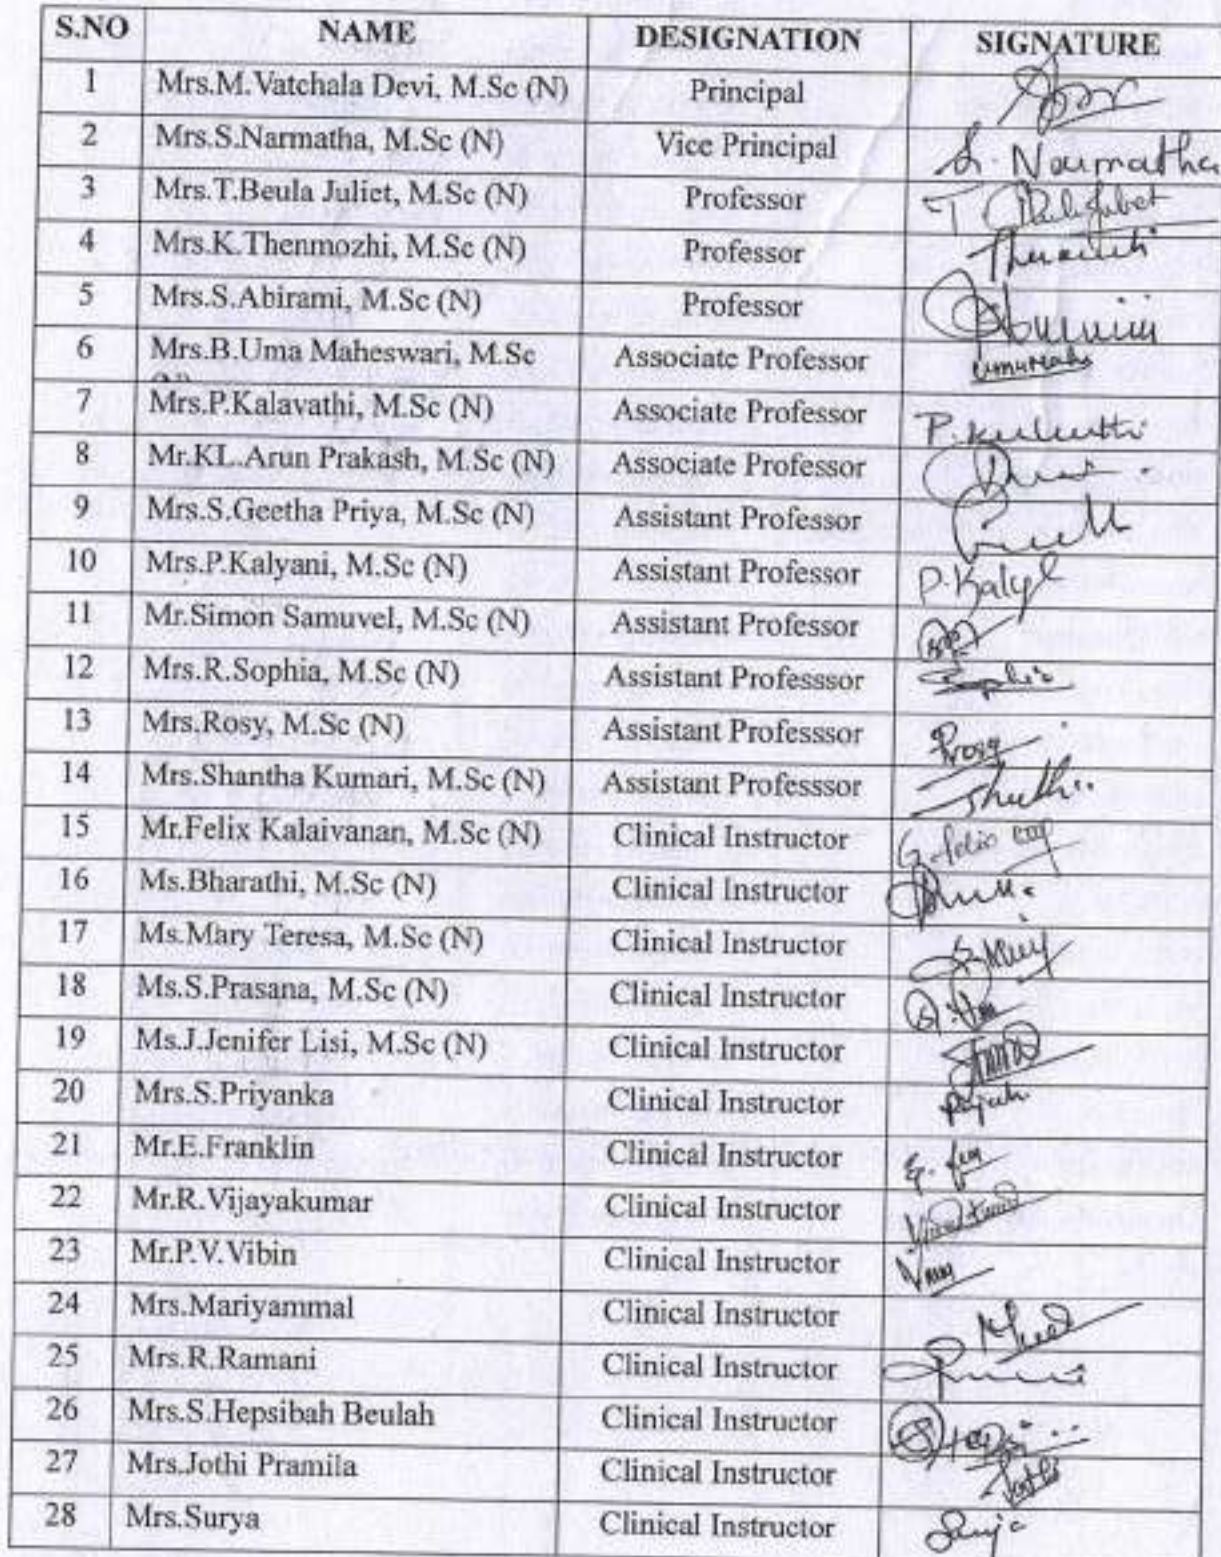 S.NO NAME DESIGNATION SIGNATURE
1 Mrs.M.Vatchala Devi, M.Sc (N) Principal
2 Mrs.S.Narmatha, M.Sc (N) Vice Principal S. Narmatha
3 Mrs.T.Beula Juliet, M.Sc (N) Professor T
4 Mrs.K.Thenmozhi, M.Sc (N) Professor
5 Mrs.S.Abirami, M.Sc (N) Professor
6 Mrs.B.Uma Maheswari, M.Sc Associate Professor
7 Mrs.P.Kalavathi, M.Sc (N) Associate Professor
8 Mr.KL.Arun Prakash, M.Sc (N) Associate Professor
9 Mrs.S.Geetha Priya, M.Sc (N) Assistant Professor
10 Mrs.P.Kalyani, M.Sc (N) Assistant Professor
11 Mr.Simon Samuvel, M.Sc (N) Assistant Professor
12 Mrs.R.Sophia, M.Sc (N) Assistant Professsor
13 Mrs.Rosy, M.Sc (N) Assistant Professsor Rosy
14 Mrs.Shantha Kumari, M.Sc (N) Assistant Professsor
15 Mr.Felix Kalaivanan, M.Sc (N) Clinical Instructor
16 Ms.Bharathi, M.Sc (N) Clinical Instructor
17 Ms.Mary Teresa, M.Sc (N) Clinical Instructor
18 Ms.S.Prasana, M.Sc (N) Clinical Instructor
19 Ms.J.Jenifer Lisi, M.Sc (N) Clinical Instructor
20 Mrs.S.Priyanka Clinical Instructor
21 Mr.E.Franklin Clinical Instructor
22 Mr.R.Vijayakumar Clinical Instructor
23 Mr.P.V.Vibin Clinical Instructor
24 Mrs.Mariyammal Clinical Instructor
25 Mrs.R.Ramani Clinical Instructor
26 Mrs.S.Hepsibah Beulah Clinical Instructor
27 Mrs.Jothi Pramila Clinical Instructor
28 Mrs.Surya Clinical Instructor